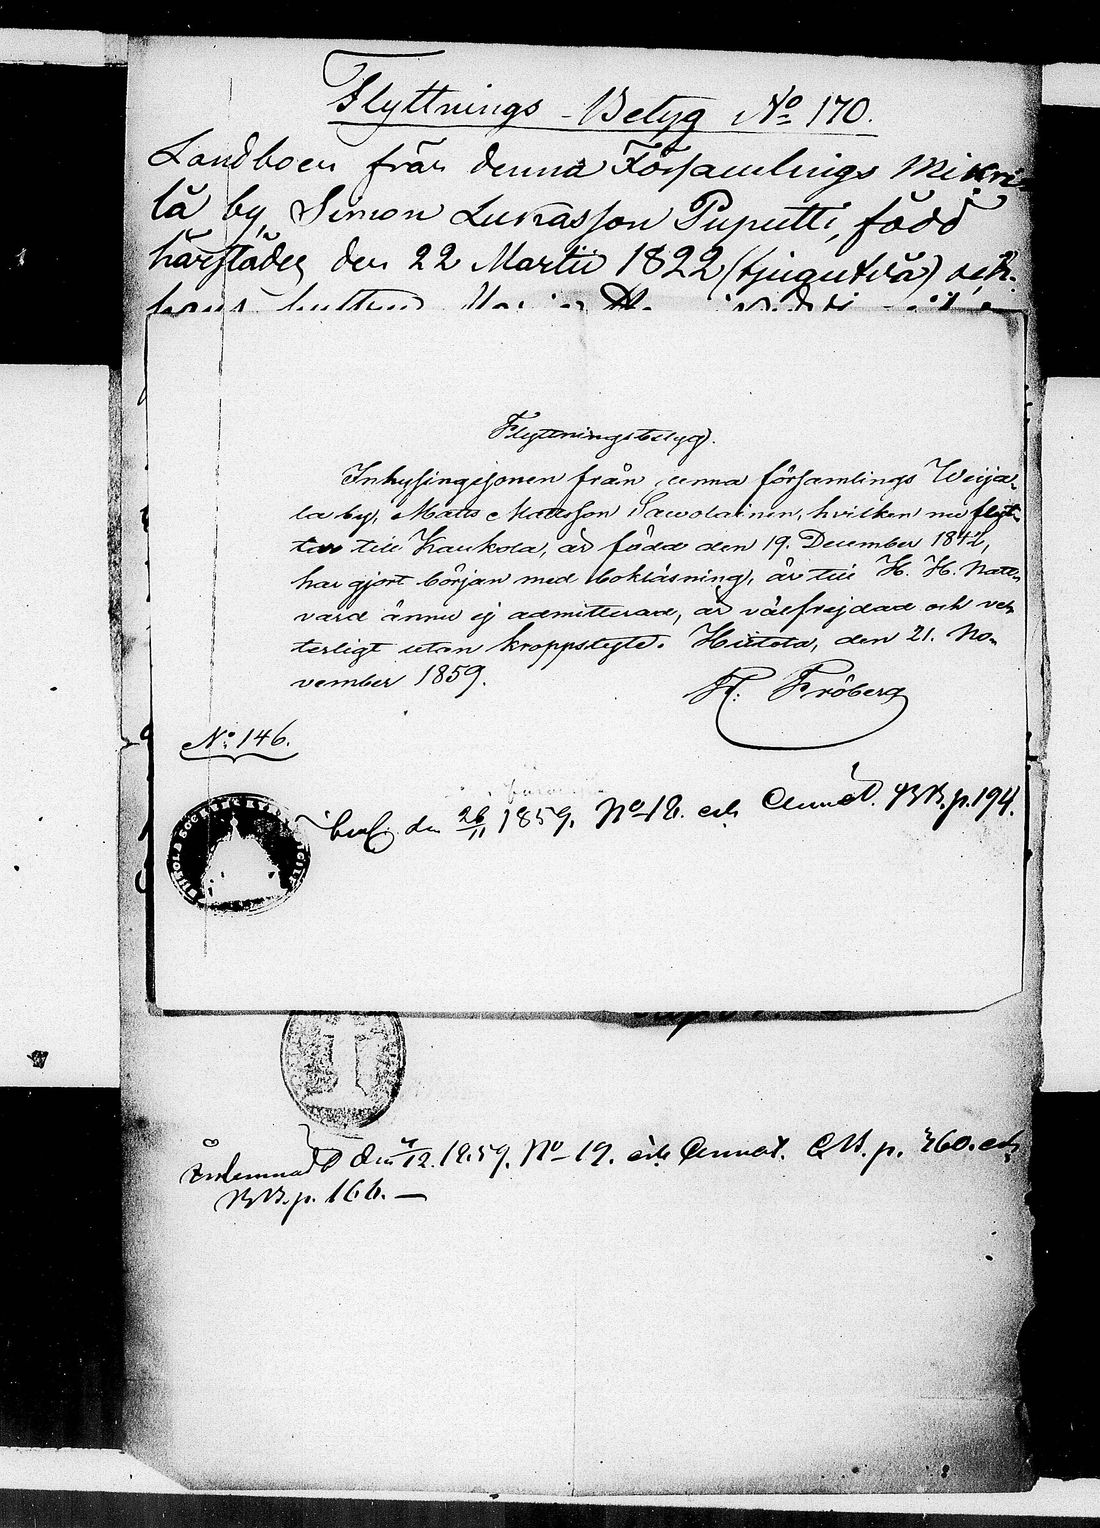 Flyttnings-Betyg No 170.
Landboen från denna Församlings Mikri-
lä by, Simon Lukasson Puputti, född
härstädes den 22 Martii 1822 (tjugutvå) och
hans hustru
Flyttningsbetyg.
Inhysingesonen från denna församlings Weija-
la by, Matts Mattsson Sawolainen, hvilken nu flyt-
tar till Kaukola, är född den 19. December 1842,
har gjort början med bokläsning, är till H. H. Natt-
vard ännu ej admitterad, är välfrejdad och ve-
terligt utan kroppslyte. Hiitola, den 21. No-
vember 1859.
Fröberg
No 146.
den 26/11 1859. No 18. och Annot. BB. p. 194.
den /12. 1859. No 19. och Annot. p. 160. och
BB. p. 166. —